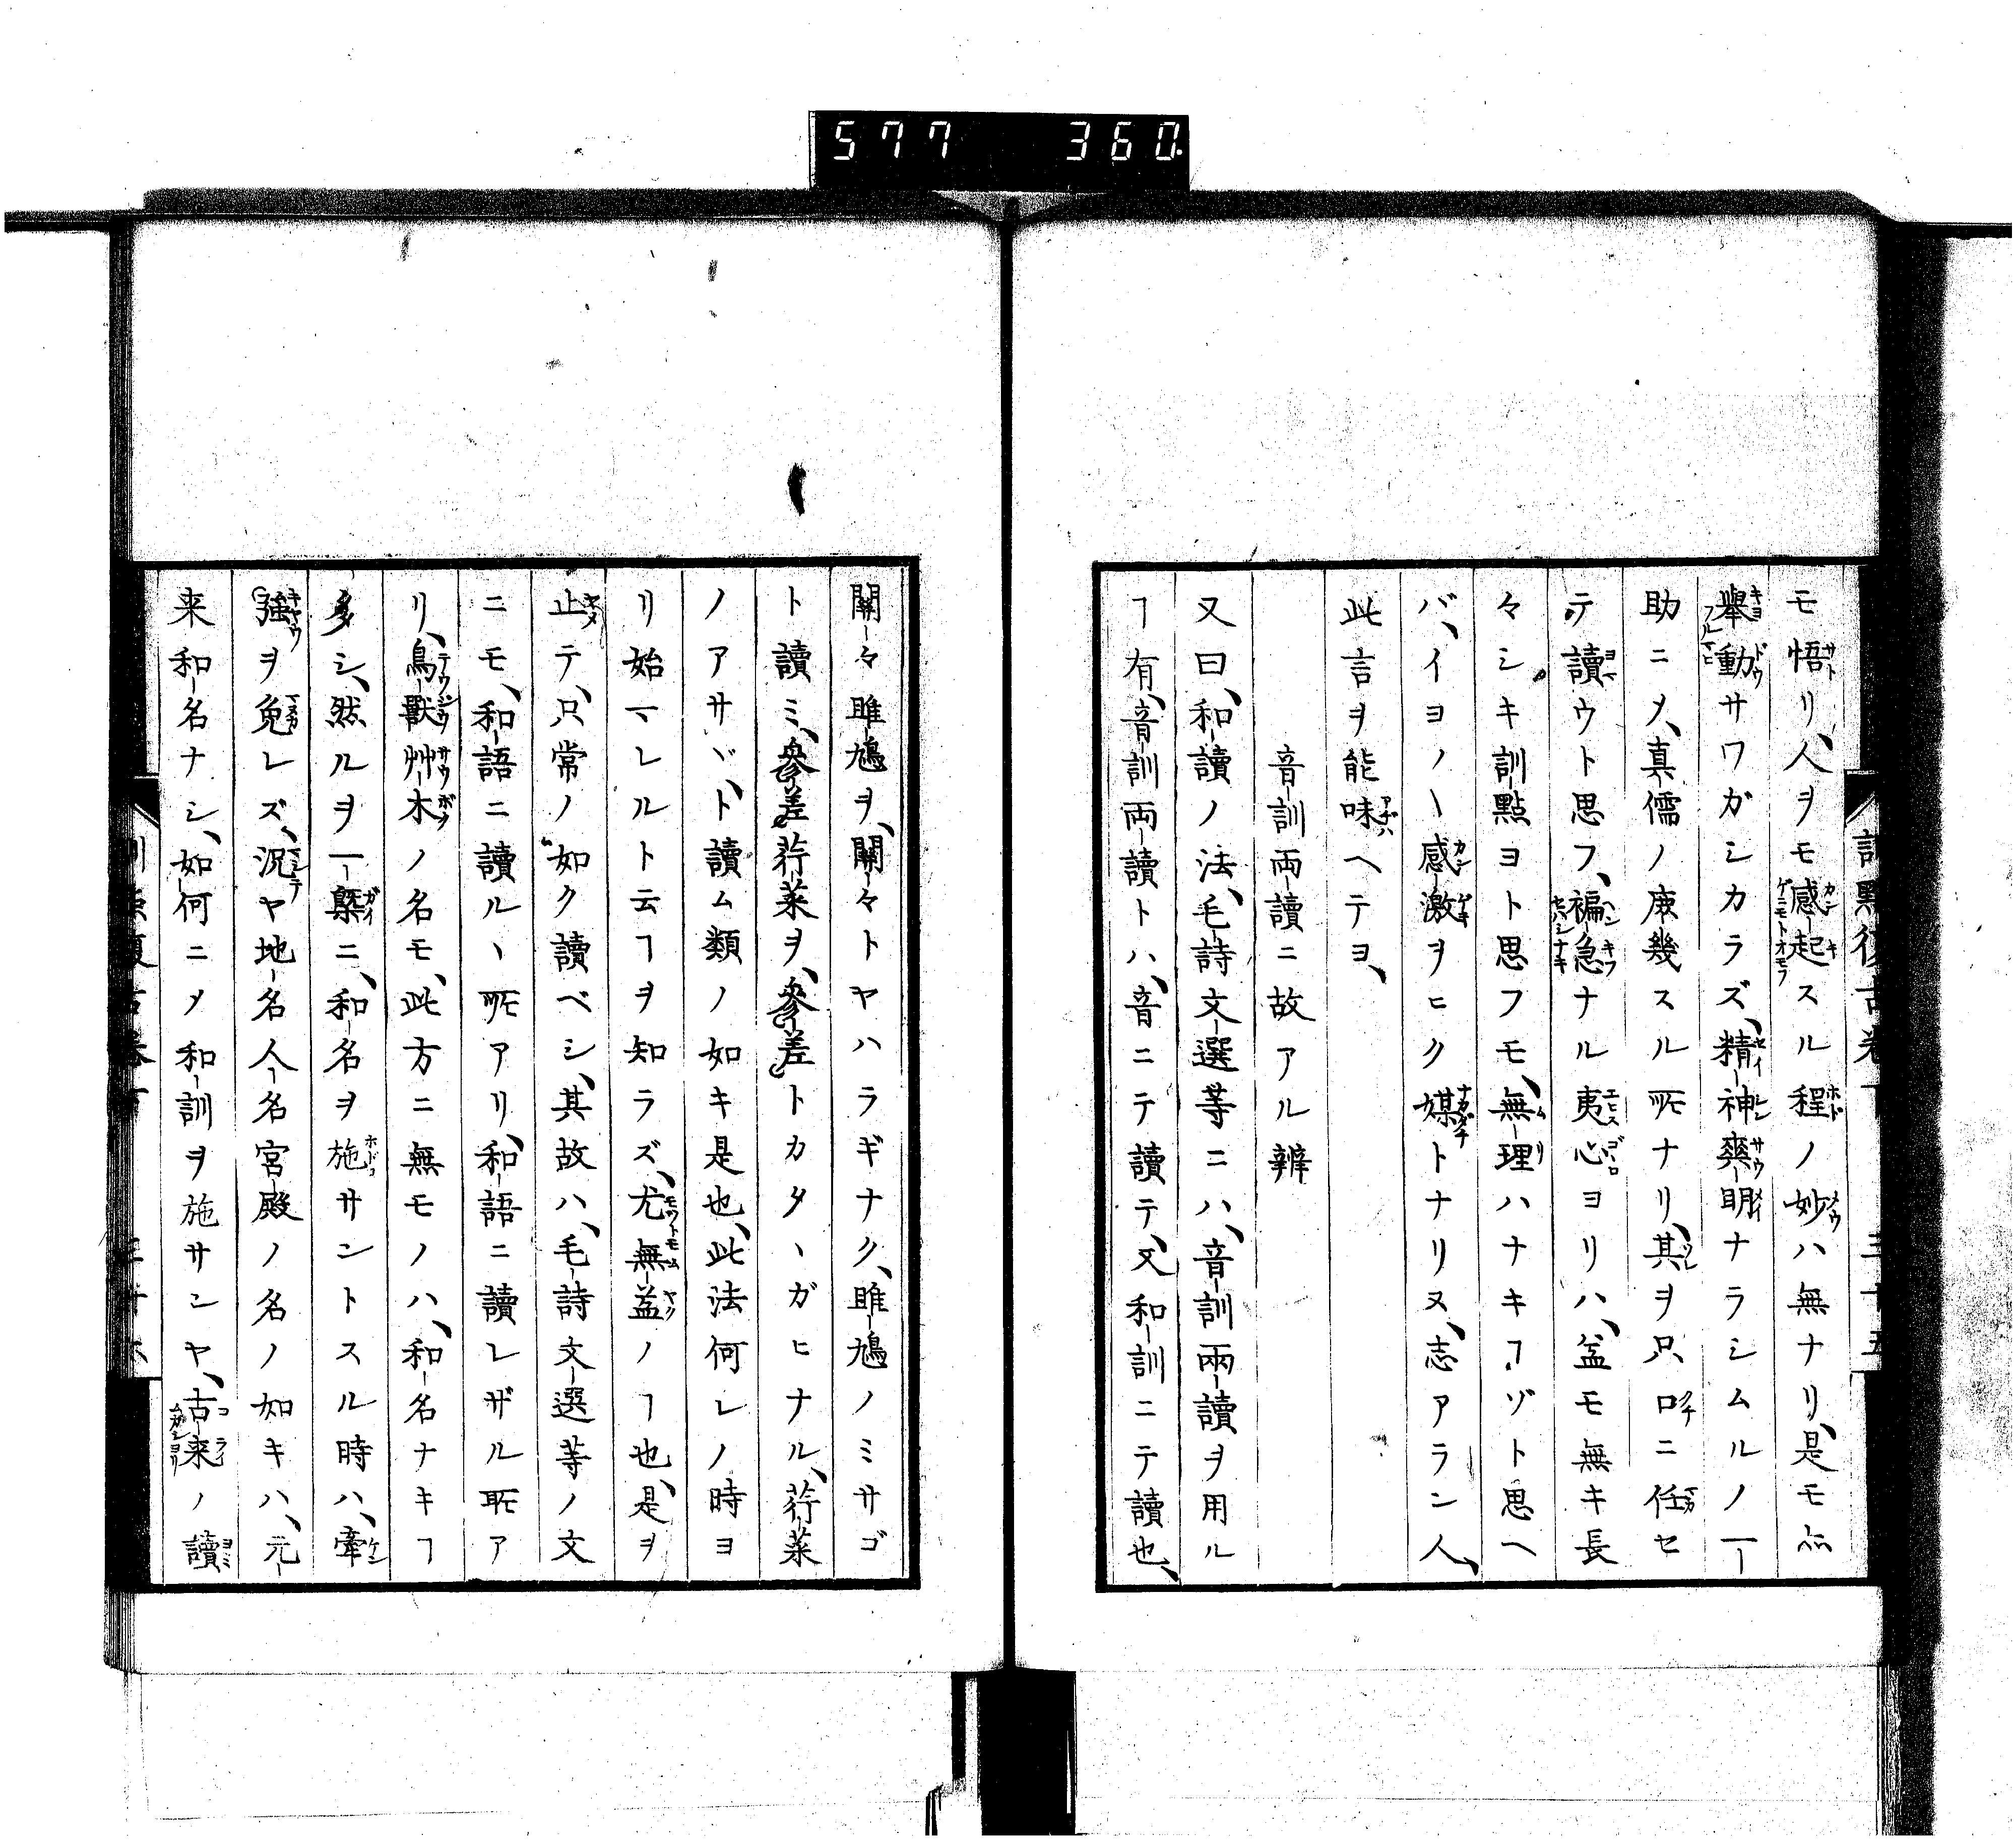 577 360
モ悟リ、人ヲモ感起スル程ノ妙ハ無ナリ、是モ亦
舉動サワガシカラズ、精神爽明ナラシムルノ一
助ニメ、真儒ノ庻幾スル所ナリ、其ヲ只口ニ任セ
テ讀ウト思フ、褊急ナル夷心ヨリハ、益モ無キ長
々シキ訓點ヨト思フモ、無理ハナキヿゾト思ヘ
バ、イヨ〳〵感激ヲヒク媒トナリヌ、志アラン人、
此言ヲ能味ヘテヨ、
音訓両讀ニ故アル辨
又曰、和讀ノ法、毛詩文選等ニハ、音訓兩讀ヲ用ル
ヿ有、音訓両讀トハ、音ニテ讀テ、又和訓ニテ讀也、
關々雎鳩ヲ、關々トヤハラギナク、雎鳩ノミサゴ
ト讀ミ、參差荇菜ヲ、參差トカタヽガヒナル、荇菜
ノアサヾ、ト讀ム類ノ如キ是也、此法何レノ時ヨ
リ始マレルト云ヿヲ知ラズ、尤無益ノヿ也、是ヲ
止テ、只常ノ如ク讀ベシ、其故ハ、毛詩文選等ノ文
ニモ、和語ニ讀ルヽ所アリ、和語ニ讀レザル所ア
リ、鳥獸艸木ノ名モ、此方ニ無モノハ、和名ナキヿ
多シ、然ルヲ一槩ニ、和名ヲ施サントスル時ハ、牽
強ヲ免レズ、況ヤ地名人名宮殿ノ名ノ如キハ、元
来和名ナシ、如何ニメ和訓ヲ施サンヤ、古来ノ讀